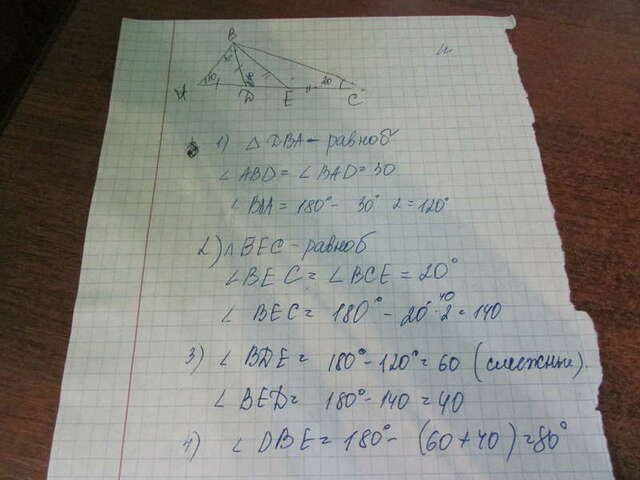 B
A D E C
20
1) △ DBA – равноб
∠ ABD = ∠ BAD = 30
∠ BDA = 180° – 30° 2 = 120°
2) △ BEC – равноб
∠ BEC = ∠ BCE = 20°
40
∠ BEC = 180° – 20° · 2 = 140
3) ∠ BDE = 180° – 120° = 60 (смежные).
∠ BED = 180° – 140 = 40
4) ∠ DBE = 180° – (60 + 40) = 80°